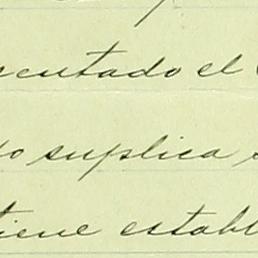 ecutado el
do suplica
tiene establ